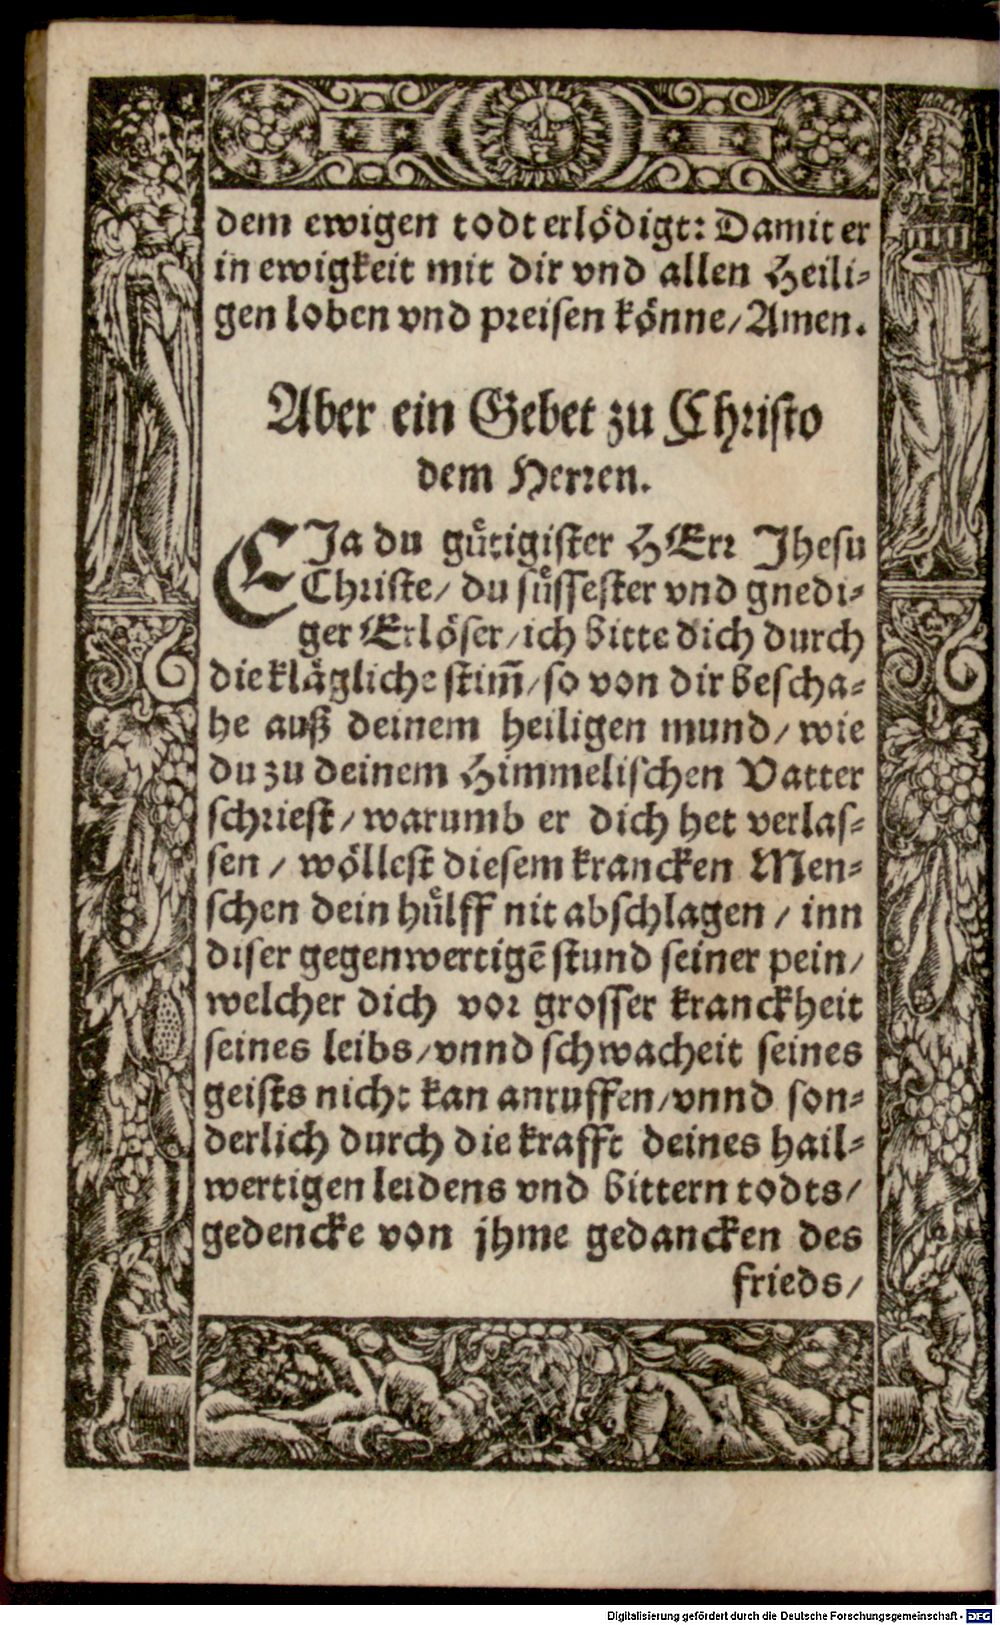 dem ewigen todt erlödigt: Damit er
in ewigkeit mit dir vnd allen Heili-
gen loben vnd preisen könne/ Amen.
Aber ein Gebet zu Christo
dem Herren.
EJa du gütigister HErr Jhesu
Christe/ du süssester vnd gnedi-
ger Erlöser/ ich bitte dich durch
die klägliche stim̄/ so von dir bescha-
he auß deinem heiligen mund/ wie
du zu deinem Himmelischen Vatter
schriest/ warumb er dich het verlas-
sen/ wöllest diesem krancken Men-
schen dein hülff nit abschlagen/ inn
diser gegenwertigē stund seiner pein/
welcher dich vor grosser kranckheit
seines leibs/ vnnd schwacheit seines
geists nicht kan anruffen/ vnnd son-
derlich durch die krafft deines hail-
wertigen leidens vnd bittern todts/
gedencke von jhme gedancken des
frieds/
Digitalisierung gefördert durch die Deutsche Forschungsgemeinschaft - DFG